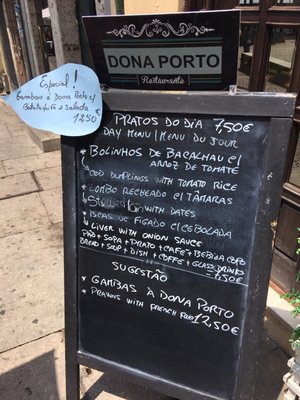 DONA PORTO
Restaurante
Especial!
Gambas à Dona Porto c/
Batata frita e Salada
12,50
PRATOS DO DIA 7,50€
DAY MENU | MENU DU JOUR
BOLINHOS DE BACALHAU c/
ARROZ DE TOMATE
COD DUMPLINGS WITH TOMATO RICE
* LOMBO RECHEADO c/ TÂMARAS
LOIN WITH DATES
* ISCAS DE FIGADO c/ CEBOLADA
LIVER WITH ONION SAUCE
PÃO + SOPA + PRATO + CAFÉ + BEBIDA COPO
BREAD + SOUP + DISH + COFFEE + GLASS DRINK
7,50€
SUGESTÃO
* GAMBAS À DONA PORTO
* PRAWNS WITH FRENCH
12,50€